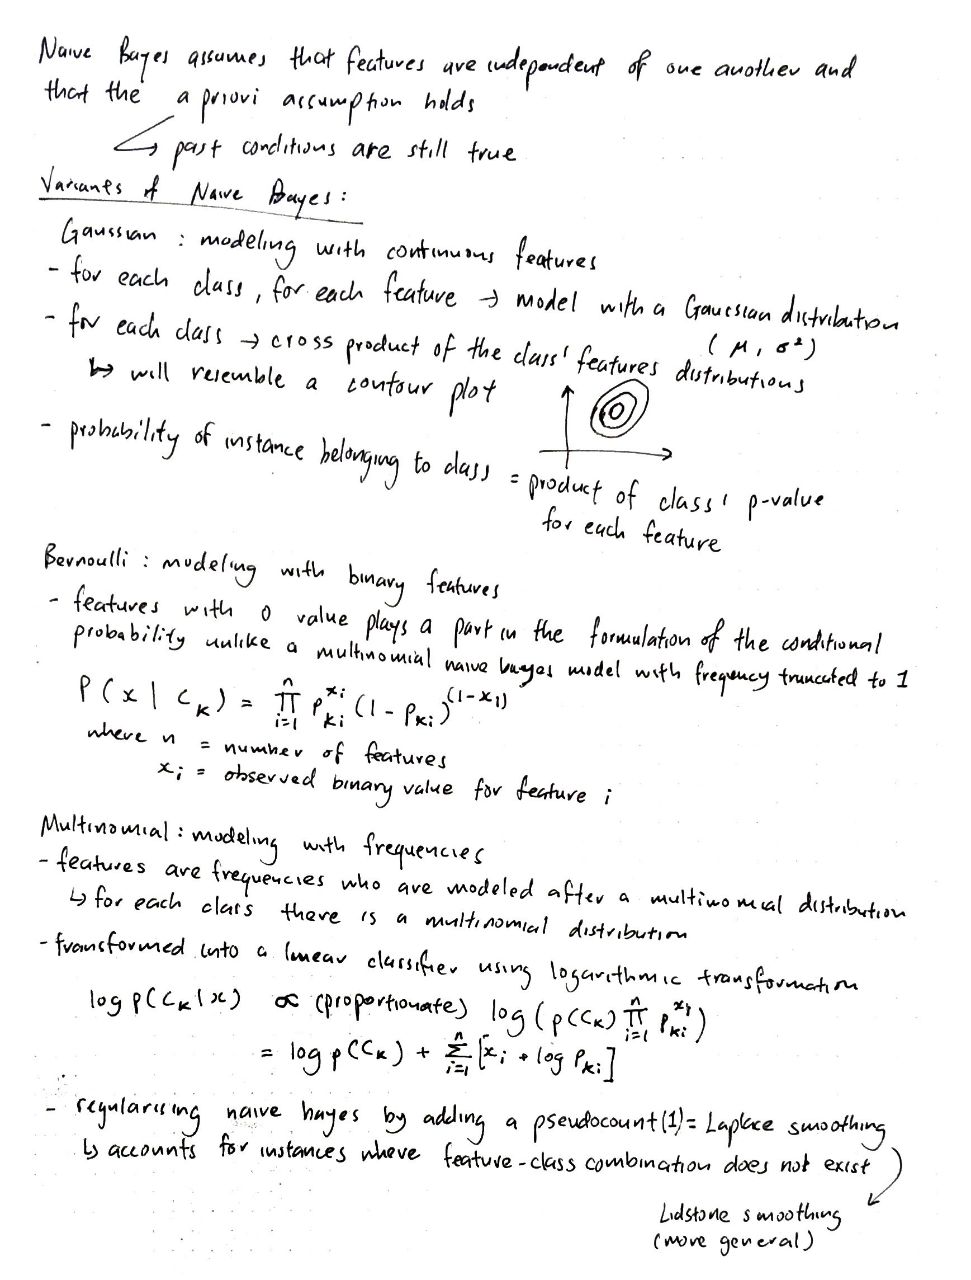 Naive Bayes assumes that features are independent of one another and
that the a priori assumption holds
↳ past conditions are still true
Variants of Naive Bayes:
Gaussian : modeling with continuous features
- for each class, for each feature → model with a Gaussian distribution
(μ, σ²)
- for each class → cross product of the class' features distributions
↳ will resemble a contour plot
- probability of instance belonging to class = product of class' p-value
for each feature
Bernoulli : modeling with binary features
- features with 0 value plays a part in the formulation of the conditional
probability unlike a multinomial naive bayes model with frequency truncated to 1
P(x | C_k) = ∏_{i=1}^{n} p_{ki}^{x_i} (1 - p_{ki})^{(1-x_i)}
where n = number of features
x_i = observed binary value for feature i
Multinomial : modeling with frequencies
- features are frequencies who are modeled after a multinomial distribution
↳ for each class there is a multinomial distribution
- transformed into a linear classifier using logarithmic transformation
log p(C_k|x) ∝ (proportionate) log (p(C_k) ∏_{i=1}^{n} p_{ki}^{x_i})
= log p(C_k) + Σ_{i=1}^{n} [x_i • log p_{ki}]
- regularising naive bayes by adding a pseudocount (1) = Laplace smoothing
↳ accounts for instances where feature-class combination does not exist
Lidstone smoothing
(more general)